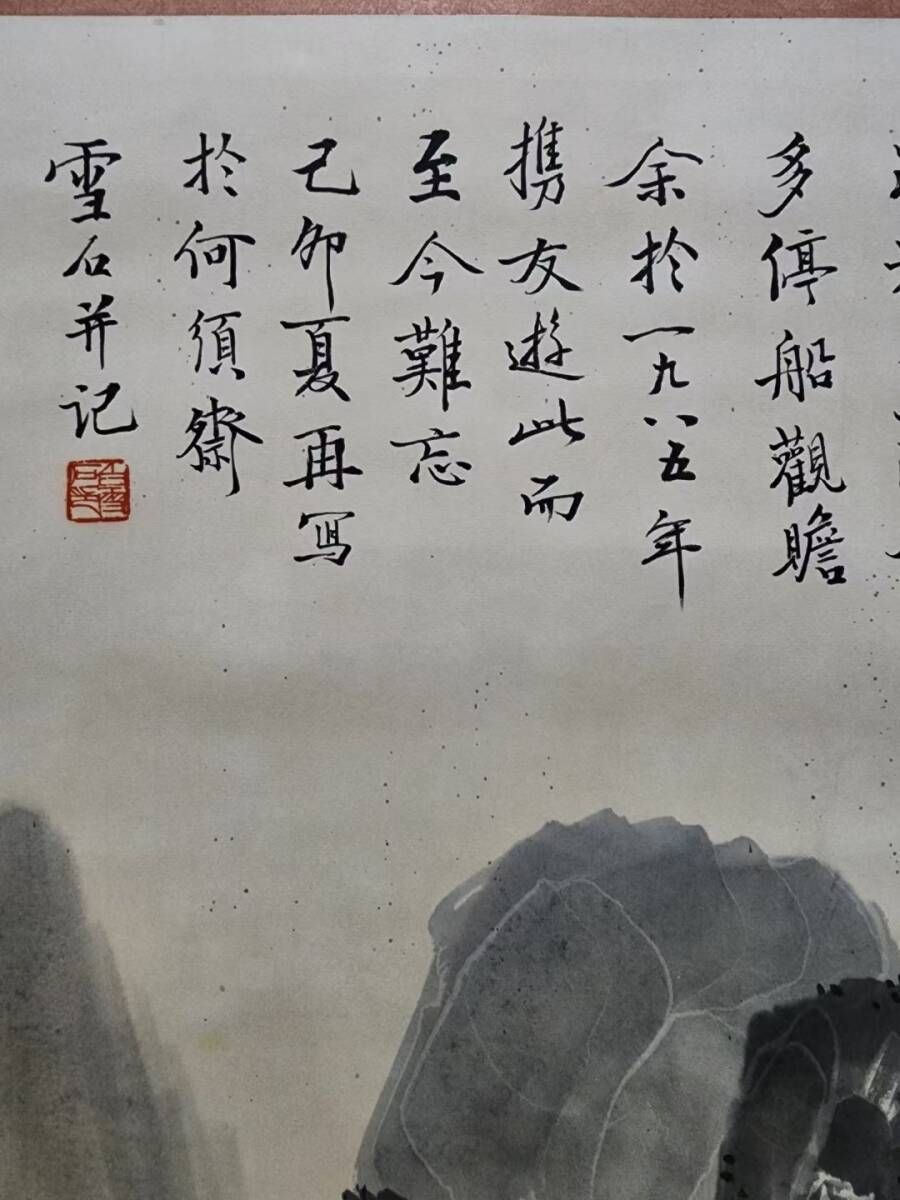 多停船觀瞻
余於一九八五年
携友遊此而
至今難忘
己卯夏再写
於何須齋
雪石并记